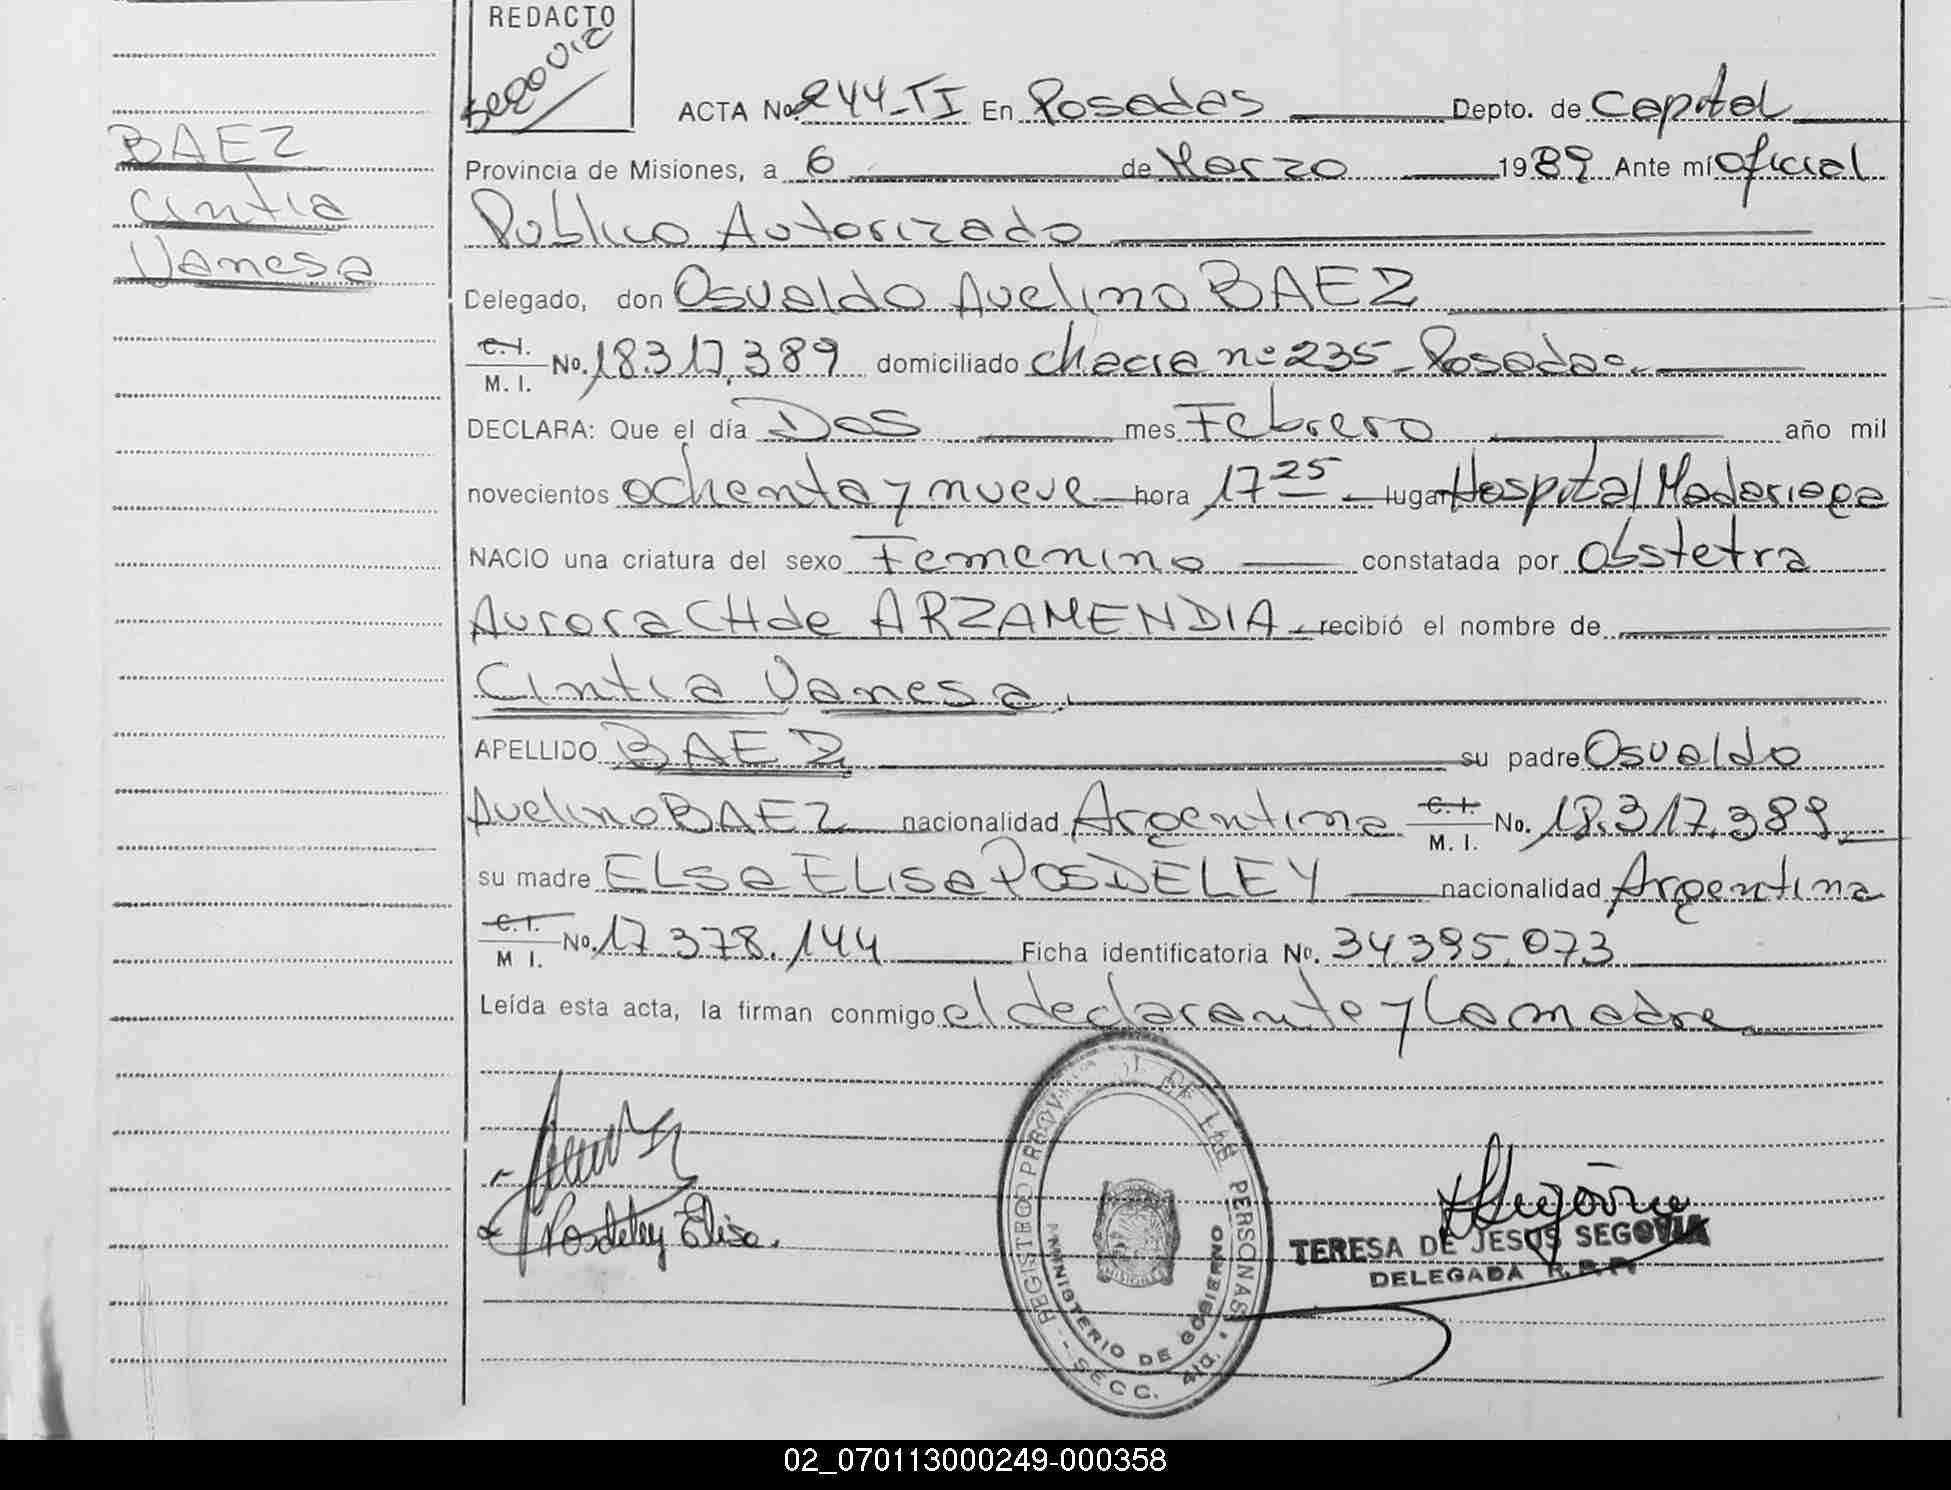 REDACTO
Segovia
BAEZ
Cintia
Vanesa
ACTA No. 244-TI En Posadas Depto. de Capital
Provincia de Misiones, a 6 de Marzo 1989 Ante mí Oficial
Publico Autorizado
Delegado, don Osvaldo Avelino BAEZ
C.I. / M. I. No. 18.317.389 domiciliado chacra nº 235 - Posadas.
DECLARA: Que el día Dos mes Febrero año mil
novecientos ochenta y nueve hora 17 25 lugar Hospital Madariaga
NACIO una criatura del sexo Femenino constatada por Obstetra
Aurora CH de ARZAMENDIA recibió el nombre de
Cintia Vanesa.
APELLIDO BAEZ su padre Osvaldo
Avelino BAEZ nacionalidad Argentina C.I. / M. I. No. 18.317.389
su madre ELsa ELisa POSDELEY nacionalidad Argentina
C.I. / M I. No. 17.378.144 Ficha identificatoria No. 34395.073
Leída esta acta, la firman conmigo el declarante y la madre
Posdeley Elisa.
REGISTRO PROV. DE LAS PERSONAS
MINISTERIO DE GOBIERNO
SECC. 4ta.
Segovia
TERESA DE JESUS SEGOVIA
DELEGADA R. P. P.
02_070113000249-000358